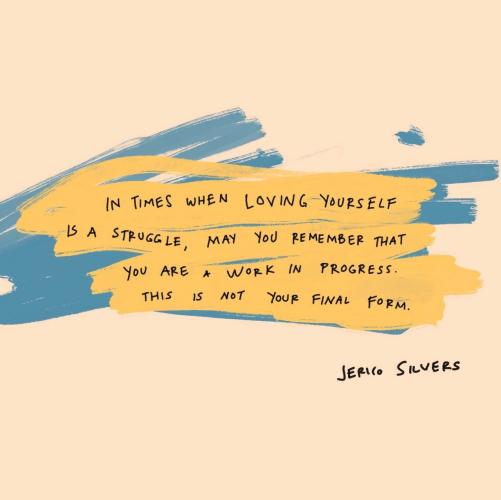 IN TIMES WHEN LOVING YOURSELF
IS A STRUGGLE, MAY YOU REMEMBER THAT
YOU ARE A WORK IN PROGRESS.
THIS IS NOT YOUR FINAL FORM.
JERICO SILVERS